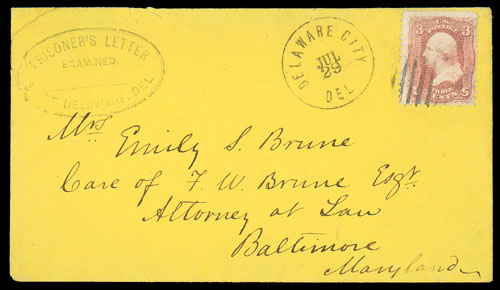 PRISONER'S LETTER
EXAMINED.
FORT DELAWARE, DEL
DELAWARE CITY
JUL
29
DEL
3 U.S. 3
POSTAGE
THREE
CENTS
Mrs
Emily S. Brune
Care of F. W. Brune Esqr.
Attorney at Law
Baltimore
Maryland